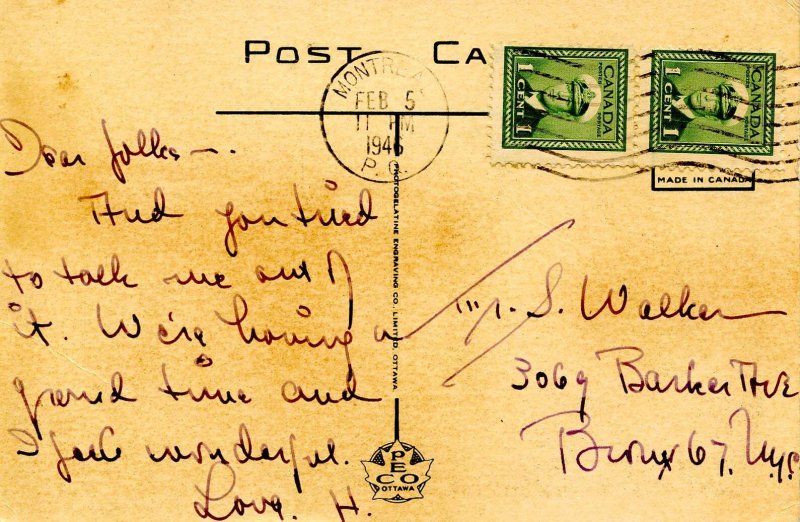 POST CA
MONTREAL
FEB 5
11 PM
1946
P.Q.
CANADA
1 CENT 1
CANADA
1 CENT 1
MADE IN CANADA
PHOTOGELATINE ENGRAVING CO. LIMITED, OTTAWA
Dear folks—.
And you tried
to talk me out of
it. We're having a
grand time and
I feel wonderful.
Love. H.
Mr. S. Walker
3069 Barker Ave
Bronx 67, N.Y.C.
PECO
OTTAWA